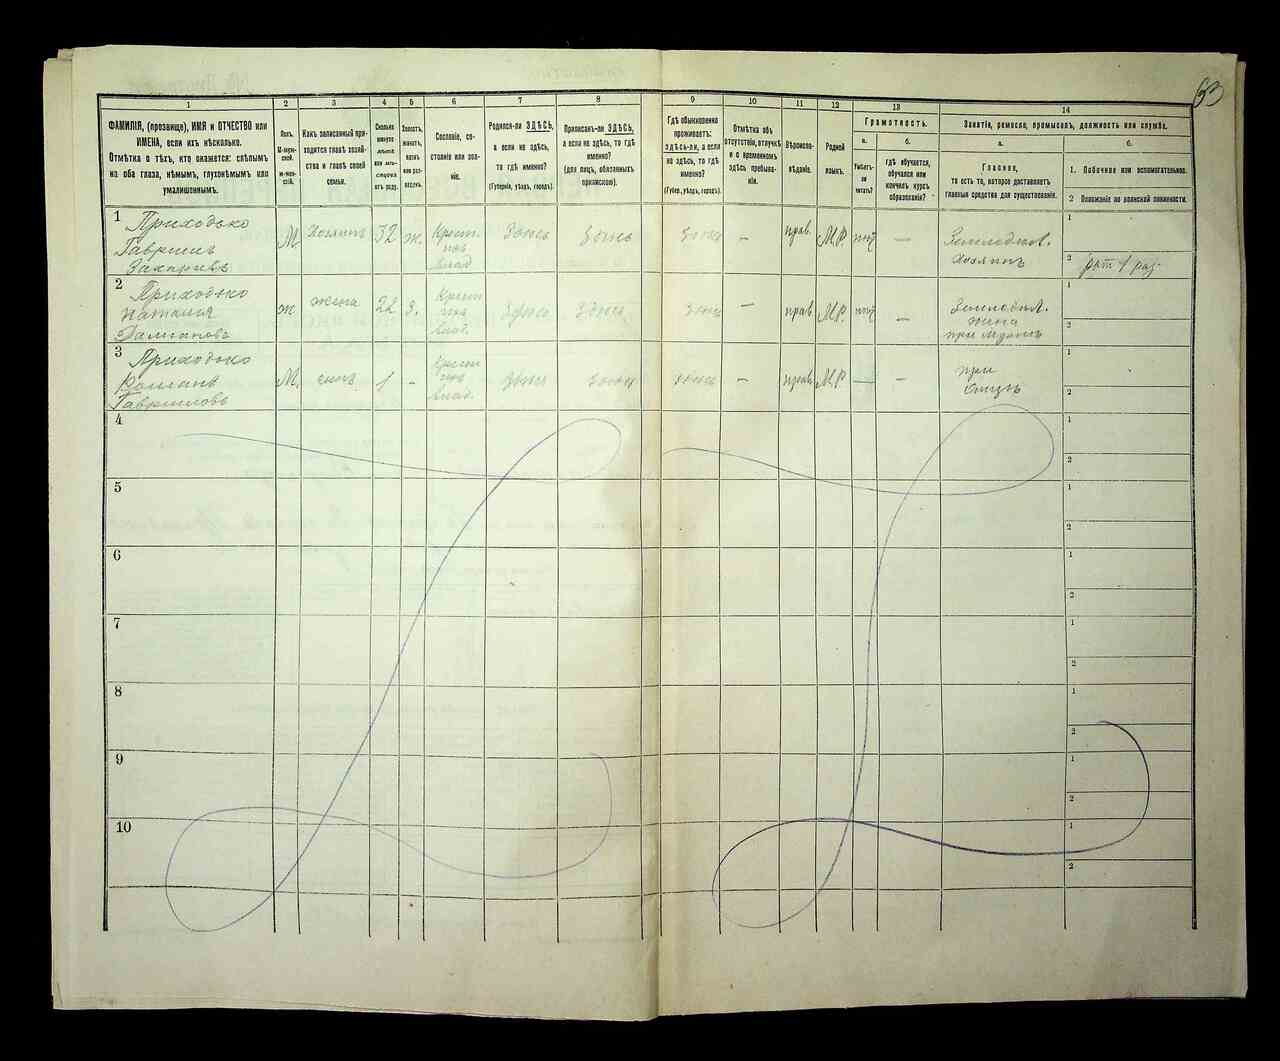 63
1
2
3
4
5
6
7
8
9
10
11
12
13
14
ФАМИЛІЯ, (прозвище), ИМЯ и ОТЧЕСТВО или
ИМЕНА, если ихъ нѣсколько.
Отмѣтка о тѣхъ, кто окажется: слѣпымъ
на оба глаза, нѣмымъ, глухонѣмымъ или
умалишеннымъ.
Полъ.
М-муж-
ской.
ж-жен-
скій.
Какъ записанный при-
ходится главѣ хозяй-
ства и главѣ своей
семьи.
Сколько
минуло
лѣтъ
или мѣ-
сяцевъ
отъ роду.
Холостъ,
женатъ,
вдовъ
или раз-
веденъ.
Сословіе, со-
стояніе или зва-
ніе.
Родился-ли ЗДѢСЬ,
а если не здѣсь,
то гдѣ именно?
(Губернія, уѣздъ, городъ).
Приписанъ-ли ЗДѢСЬ,
а если не здѣсь, то гдѣ
именно?
(для лицъ, обязанныхъ
припискою).
Гдѣ обыкновенно
проживаетъ:
здѣсь-ли, а если
не здѣсь, то гдѣ
именно?
(Губер., уѣздъ, городъ).
Отмѣтка объ
отсутствіи, отлучкѣ
и о временномъ
здѣсь пребыва-
ніи.
Вѣроиспо-
вѣданіе.
Родной
языкъ.
Грамотность.
а.
Умѣетъ-
ли
читать?
б.
гдѣ обучается,
обучался или
кончилъ курсъ
образованія?
Занятіе, ремесло, промыселъ, должность или служба.
а.
Главное,
то есть то, которое доставляетъ
главныя средства для существованія.
б.
1. Побочное или вспомогательное.
2 Положеніе по воинской повинности.
1
Приходько
Гавриилъ
Захаріевъ
М
Хозяинъ
32
ж.
Крест.
Здѣсь
Здѣсь
Здѣсь
—
прав.
МР.
—
Хозяинъ
1
2
2
Приходько
Наталія
ж
жена
22
з.
Крест
Здѣсь
Здѣсь
Здѣсь
—
прав.
МР.
—
жена
при мужѣ
1
2
3
Приходько
Романъ
Гавриловъ
М.
сынъ
1
-
Здѣсь
Здѣсь
Здѣсь
—
прав.
МР.
—
-
при
отцѣ
1
2
4
1
2
5
1
2
6
1
2
7
1
2
8
1
2
9
1
2
10
1
2